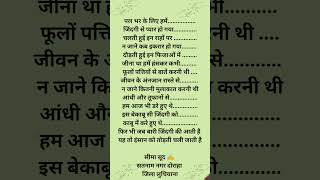 पल भर के लिए हमें................
जिंदगी से प्यार हो गया............
चलती हुई इन राहों पर ............
न जाने कब इकरार हो गया........
दौड़ती हुई इन फिजाओं में ........
जीना था हमें हंसकर कभी........
फूलों पत्तियों से बातें करनी थी ....
जीवन के अंनजान रास्ते से........
न जाने कितनी मुलाकात करनी थी
आंधी और तूफानों से..............
हम आज भी डरे हुए थे............
इस बेकाबू सी जिंदगी को.........
काबू में करे हुए थे................
फिर भी जब बारी जिंदगी की आती है
यह तो इंसान को तोड़ती चली जाती है
सीमा सूद ✍️
सतनाम नगर दोराहा
जिला लुधियाना
जीना
फूलों
जीवन
न जाने
आंधी और
हम आज
इस बेका